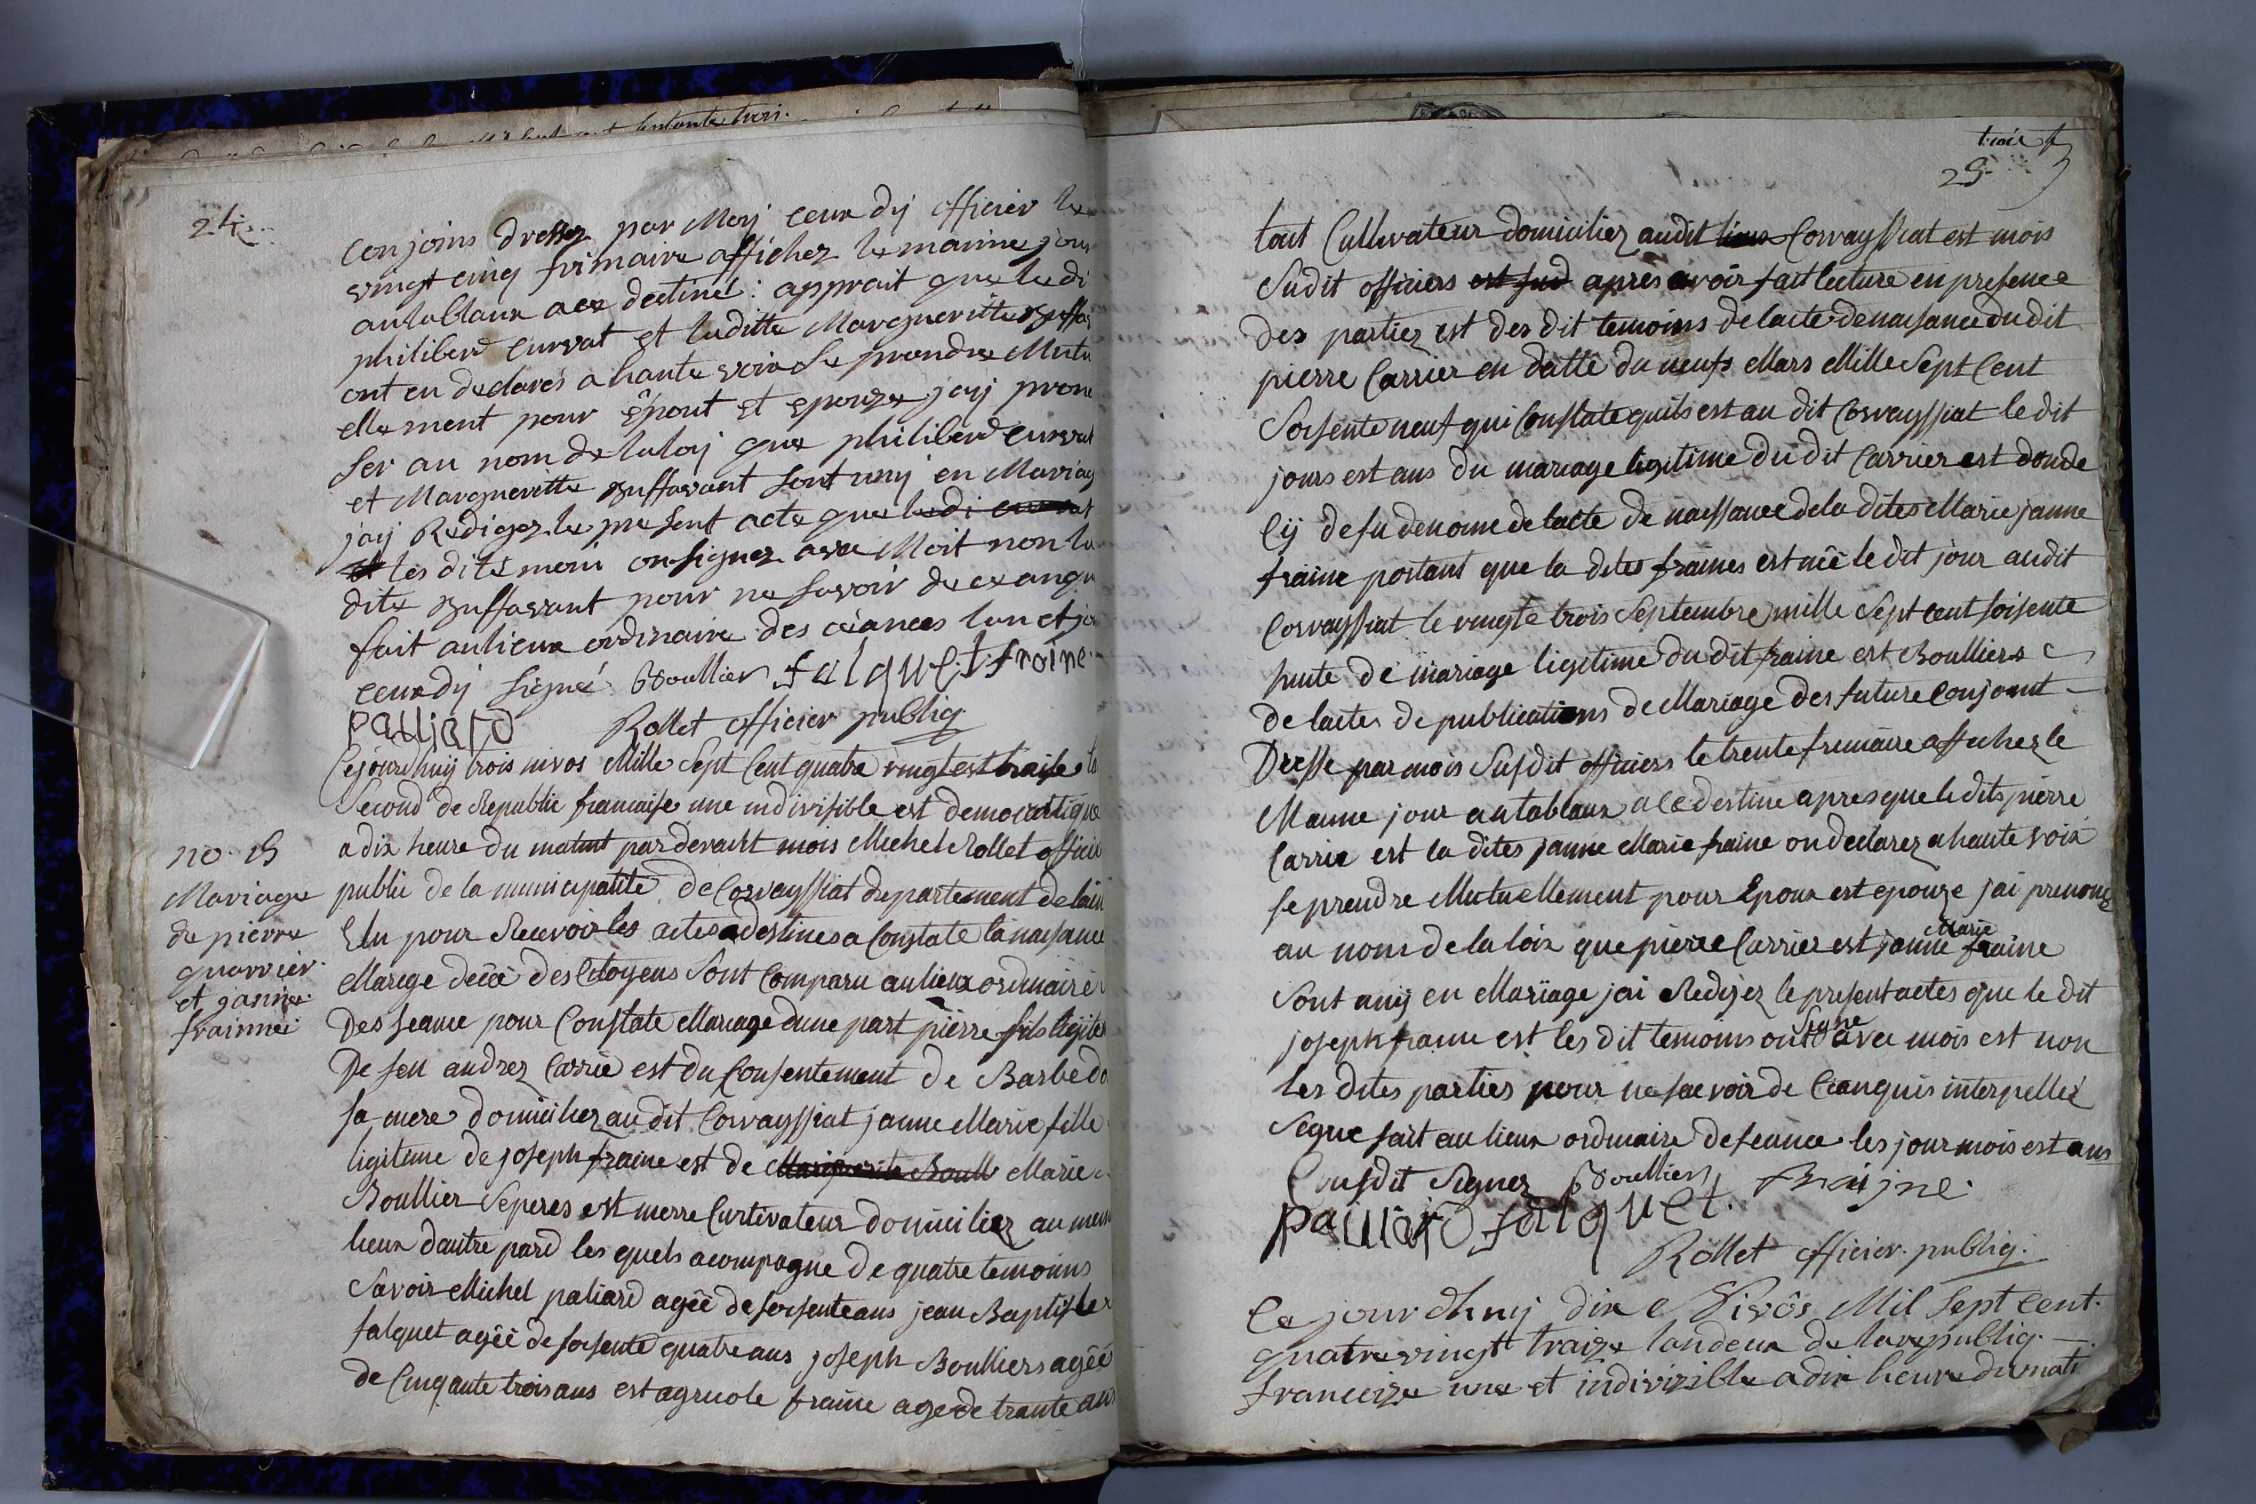 24
conjoins dressez par Moy ceux dy officier le
vingt cinq frimaire affichez le maime jour
au tablaux ace dectiné: apprait que le di
philiberd curvat et laditte Margueritte guffar
ont en declarés a haute voix Se prendre Mutu
ellement pour êpout et epouze jay prone
ser au nom de la loy que philiberd curvat
et Margueritte guffavant sont uny en Mariag
jay Redigez le present acte que ledi curvat
et les dit témoin on signez avec Moit non la
dite guffavant pour ne savoir de ce anqu
fait aulieux ordinaire des céances lan et jo
ceux dy signé Boullier falquet fraine
palliard Rollet officier publiq
Cejourdhuy trois nivos Mille Sept Cent quatre vingt est traise la
Second de Republic francaise une indivisible est democratique
a dix heure du matint par devant mois Michel Rollet officie
public de la municipatité de Corvayssiat departement de lain
Elu pour Recevoir les actes a destines a Constate la naisance
Marege décê des Citoyens Sont Comparu au lieux ordinaire
Des seance pour Constate Mariage dune part pierre fils legitem
De feu andrez Carrie est du Consentement de Barbe do
sa mere domiciliez au dit Corvayssiat janne Marie fille
ligitime de joseph fraine est de Marigerite Boull Marie
Boullier Seperes est merre Curtivateur domiciliez au mem
lieux dautre pard les quels acompagne de quatre temoins
Savoir Michel paliard agêê de soisente ans jean Baptiste
falquet agêê de soisente quatre ans joseph Boulliers agêê
de Cinqante trois ans est agricole fraine age de trante ans
no 15
Mariage
de pierre
quarrier
et janne
frainne
trois
25
tout Cultivateur domiciliez audit lieux Corvayssiat est mois
Sudit officiers est sud apres avoir fait lecture en presence
des partiez est des dit temoins de lacte de naisance du dit
pierre Carrier en datte du neufs Mars Mille Sept Cent
Soisente neuf qui Constate quils est au dit Corvayssiat le dit
jours est ans du mariage ligitime du dit Carrier est donde
Cy defu denome de lacte de naissance de la dites Marie janne
fraine portant que la dites fraines est nêê le dit jour audit
Corvayssiat le vingte trois Septembre mille Sept cent soisente
hunte de mariage ligitime du dit fraine est Boulliers
de lactes de publications de Mariage des future conjoint
Dresse par mois Susdit officiers le trente frimaire affichez le
Maime jour au tablaux a ce destine apres que le dits pierre
Carrie est la dites janne Marie fraine on declarez a haute voix
se prendre Mutuellement pour Epoux est epouze jai prenonse
au nom de la loix que pierre Carrier est janne Marie fraine
Sont any en Mariage jai Redigez le present actes que le dit
joseph fraine est les dit temoins ont Signe avec mois est non
les dites parties pour ne scavoir de Ceanquis interpellez
Segue fait au lieux ordinaire de seance les jour mois est ans
Cusdit Signez Boullier fraijne
palliard falquet
Rollet officier publiq.
Ce jour dhuij dix Nivôs Mil Sept Cent
quatre vingt traize landeux de la republiq.
francoize une et indivizible a dix heure du mati